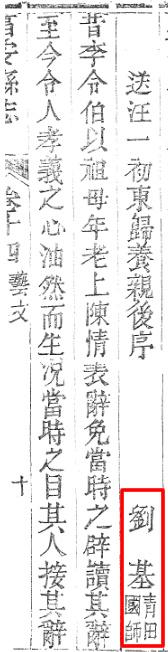 送汪一初東歸養親後序 劉基青田國師
昔李令伯以祖母年老上陳情表辭免當時之辟讀其辭
至今令人孝義之心油然而生況當時之目其人接其辭
卷十四藝文 十